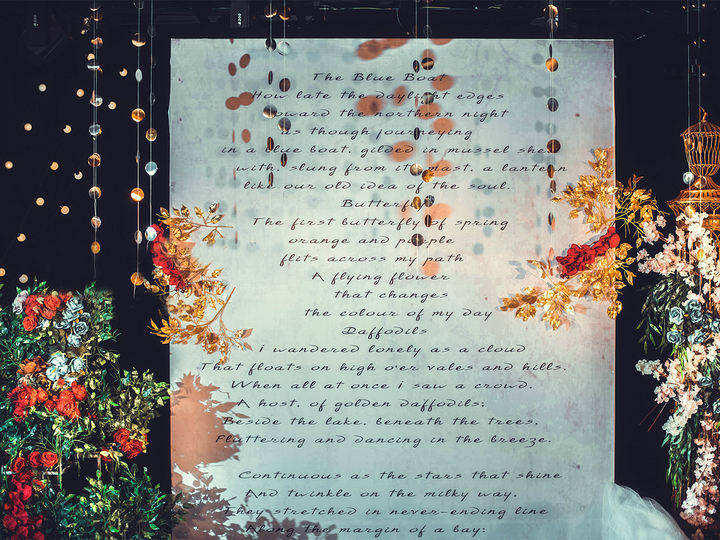 The Blue Boat
How late the daylight edges
toward the northern night
as though journeying
in a blue boat, gilded in mussel shell
with, slung from its mast, a lantern
like our old idea of the soul.
Butterfly
The first butterfly of spring
orange and purple
flits across my path
A flying flower
that changes
the colour of my day
Daffodils
i wandered lonely as a cloud
That floats on high o'er vales and hills,
When all at once i saw a crowd,
A host, of golden daffodils;
Beside the lake, beneath the trees,
Fluttering and dancing in the breeze.
Continuous as the stars that shine
And twinkle on the milky way,
They stretched in never-ending line
Along the margin of a bay: